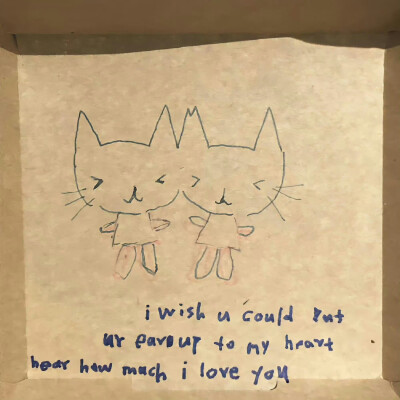 i wish u could put
ur ears up to my heart
hear how much i love you